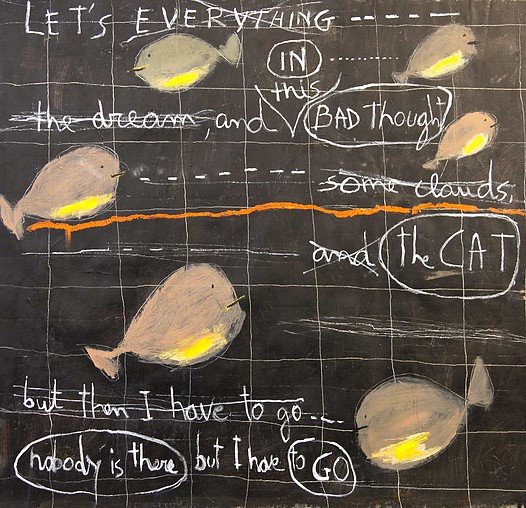 LET'S EVERYTHING
IN
this
the dream, and BAD Thought
some clouds,
and the CAT
but then I have to go....
nobody is there but I have to GO